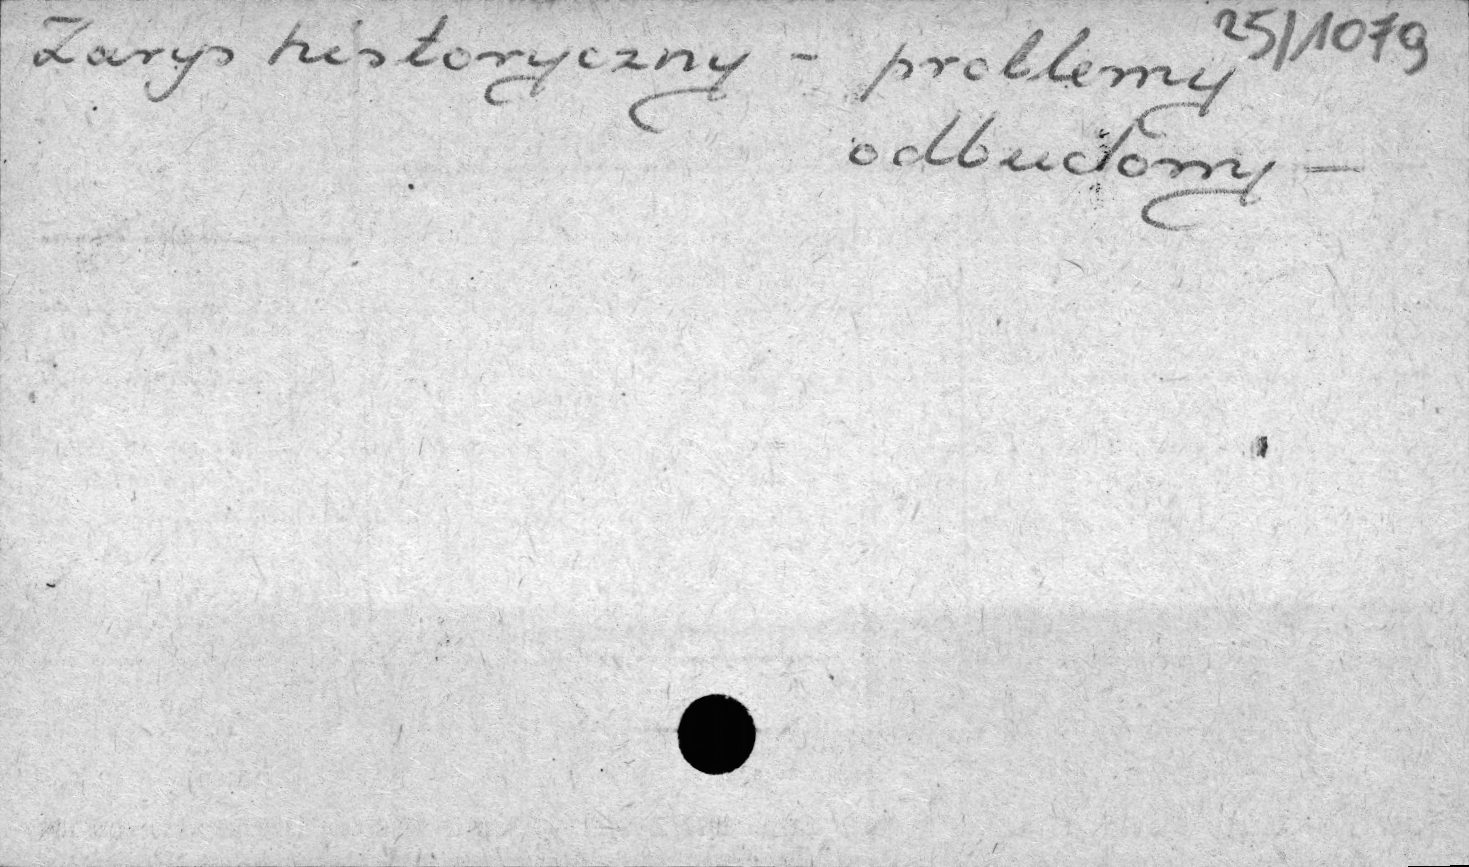 Zarys historyczny - problemy 25/1079
odbudowy —